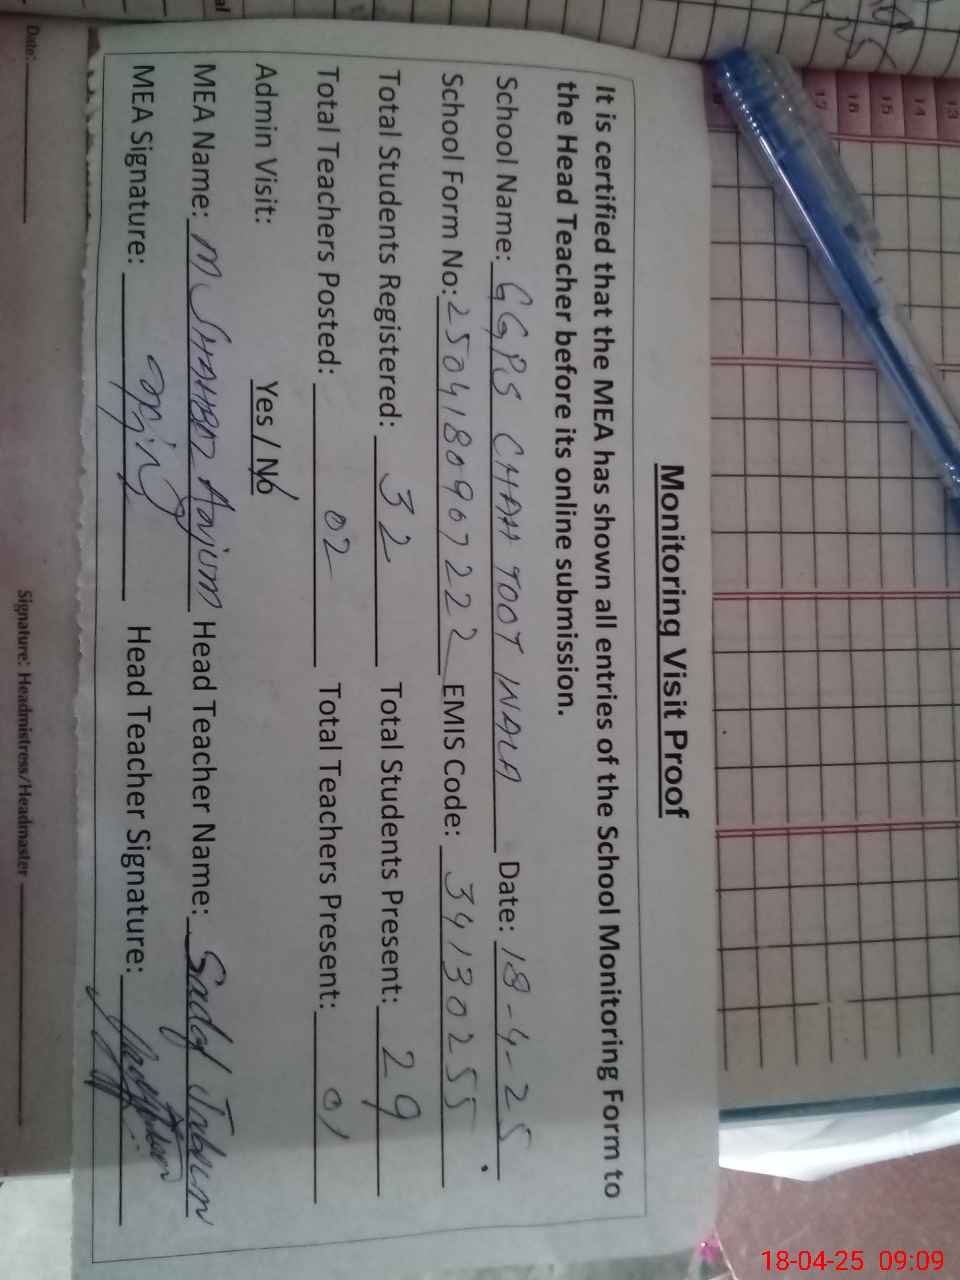 Monitoring Visit Proof
It is certified that the MEA has shown all entries of the School Monitoring Form to
the Head Teacher before its online submission.
School Name: GGPS CHAH TOOT WALA Date: 18-4-25
School Form No: 2504180907222 EMIS Code: 34130255
Total Students Registered: 32 Total Students Present: 29
Total Teachers Posted: 02 Total Teachers Present: 01
Admin Visit: Yes / No
MEA Name: M SHAHBAZ Anjum Head Teacher Name:
MEA Signature: Head Teacher Signature:
Date:
Signature: Headmistress/Headmaster
13
14
15
16
17
18-04-25 09:09